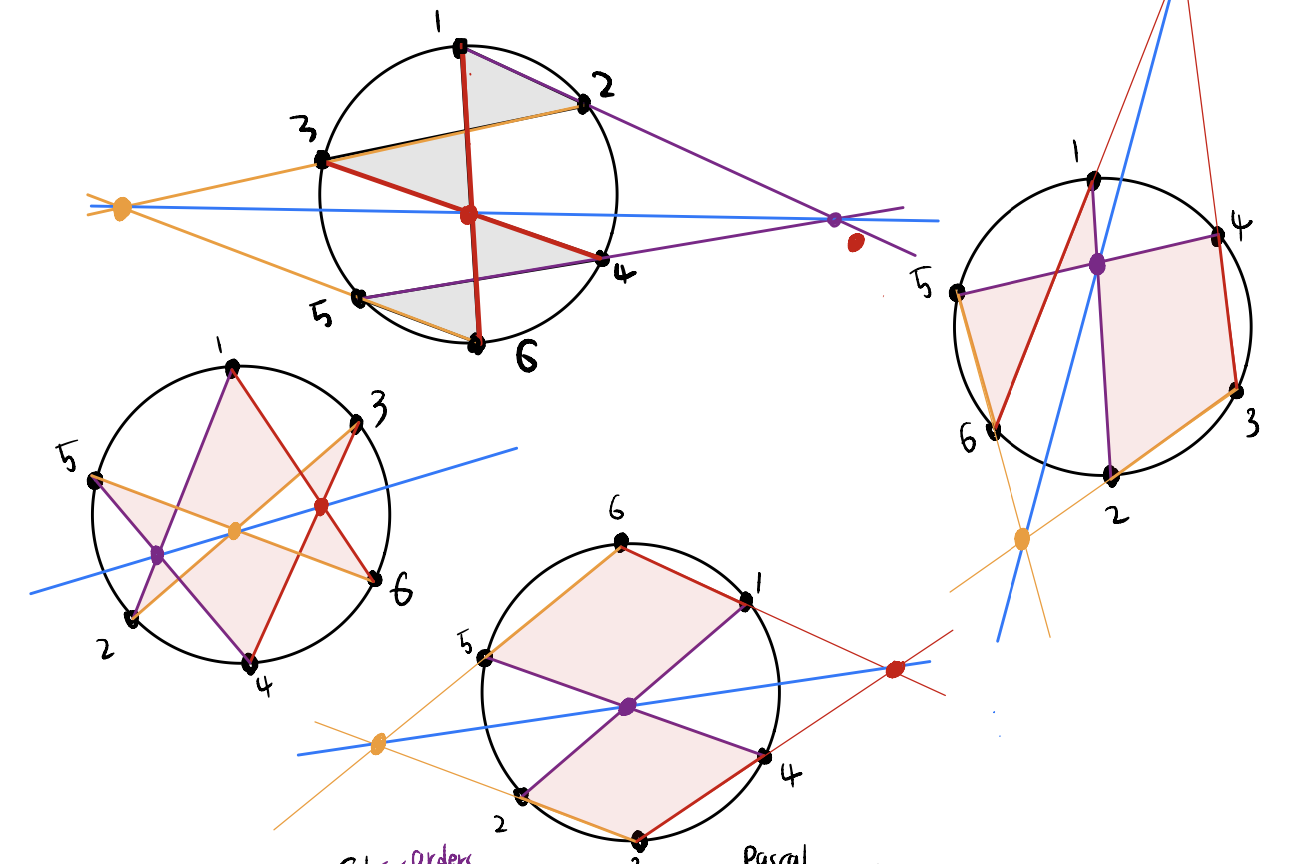 1
2
3
4
5
6
1
4
5
6
3
2
1
3
5
6
2
4
6
1
5
4
2
orders
Pascal